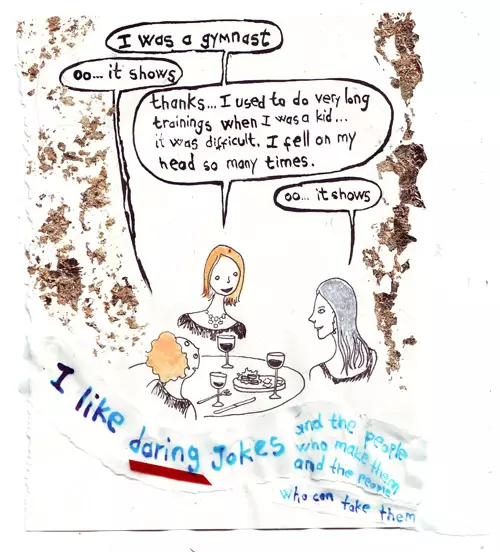 I was a gymnast
oo... it shows
thanks... I used to do very long
trainings when I was a kid...
it was difficult. I fell on my
head so many times.
oo... it shows
I like daring jokes
and the people
who make them
and the people
who can take them